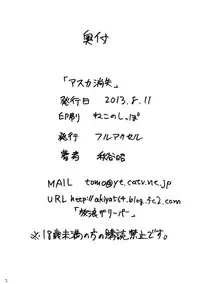 奥付
「アスカ消失」
発行日 2013.8.11
印刷 ねこのしっぽ
発行 フルアクセル
著者
MAIL tomo@yt.catv.ne.jp
URL http://akiya514.blog.fc2.com
※18歳未満の方の購読禁止です。